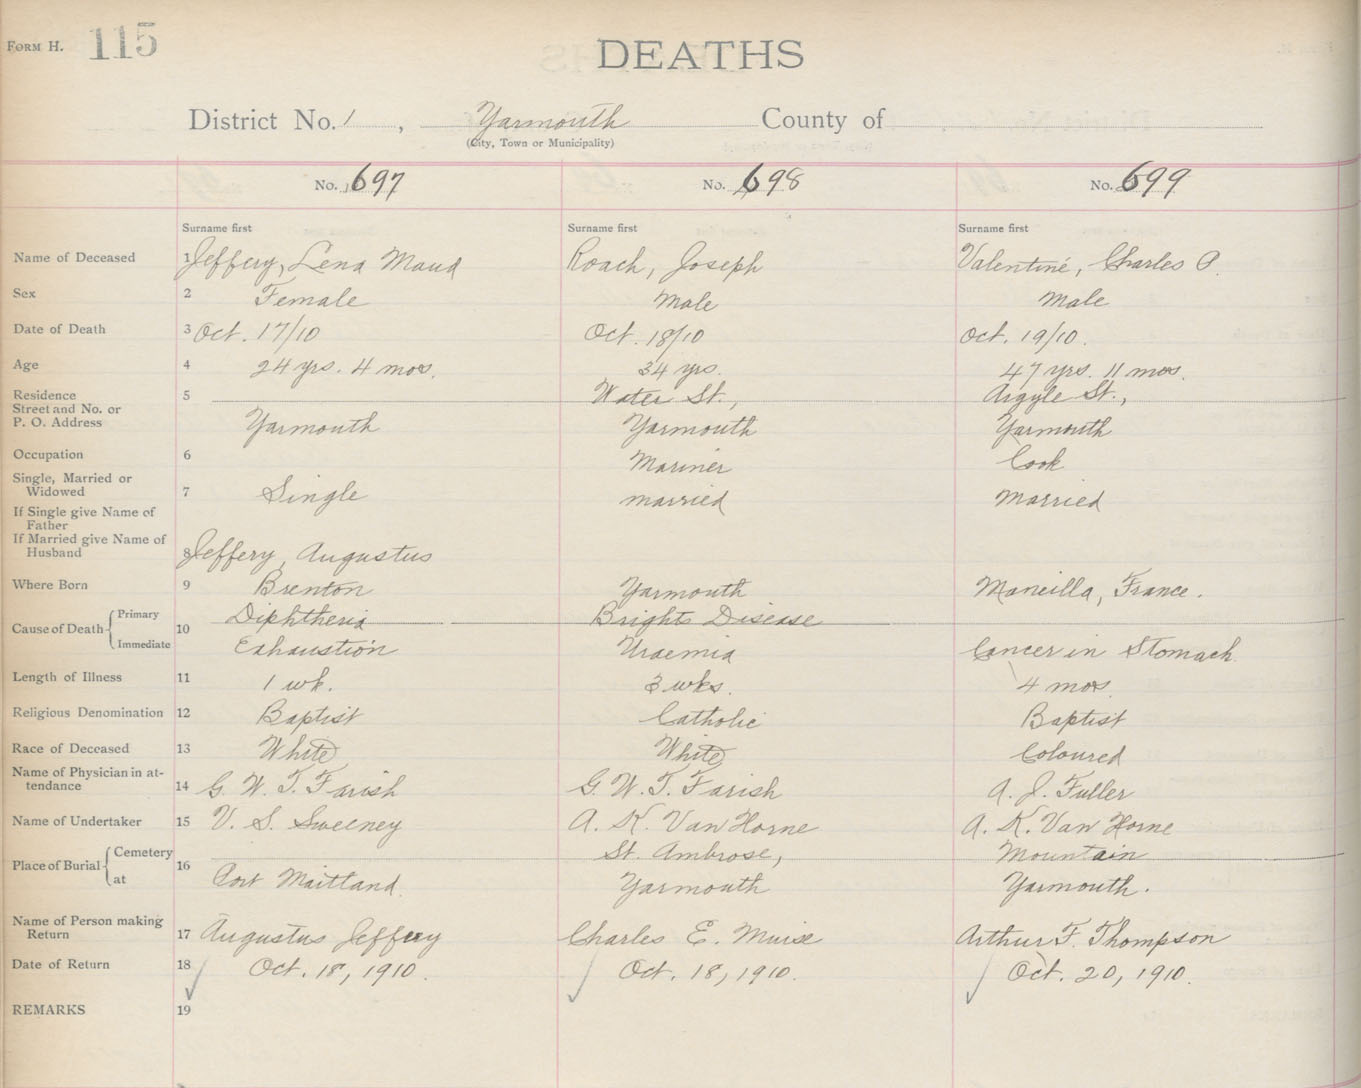 FORM H. 115
DEATHS
District No. 1, Yarmouth County of
(City, Town or Municipality)
No. 697 No. 698 No. 699
Surname first Surname first Surname first
Name of Deceased 1 Jeffery, Lena Maud Roach, Joseph Valentine, Charles P.
Sex 2 Female Male Male
Date of Death 3 Oct. 17/10 Oct. 18/10 Oct. 19/10.
Age 4 24 yrs. 4 mos. 34 yrs. 47 yrs. 11 mos.
Residence 5 Water St., Argyle St.,
Street and No. or
P. O. Address Yarmouth Yarmouth Yarmouth
Occupation 6 Mariner Cook
Single, Married or
Widowed 7 Single married married
If Single give Name of
Father
If Married give Name of
Husband 8 Jeffery, Augustus
Where Born 9 Brenton Yarmouth Marcilla, France.
Cause of Death Primary 10 Diphtheria Brights Disease
Immediate Exhaustion Uraemia Cancer in Stomach
Length of Illness 11 1 wk. 3 wks. 4 mos.
Religious Denomination 12 Baptist Catholic Baptist
Race of Deceased 13 White White Coloured
Name of Physician in at-
tendance 14 G. W. T. Farish G. W. T. Farish A. J. Fuller
Name of Undertaker 15 V. S. Sweeney A. K. Van Horne A. K. Van Horne
Place of Burial Cemetery 16 St. Ambrose, Mountain
at Port Maitland Yarmouth Yarmouth.
Name of Person making
Return 17 Augustus Jeffery Charles E. Muise Arthur F. Thompson
Date of Return 18 Oct. 18, 1910. Oct. 18, 1910. Oct. 20, 1910.
REMARKS 19